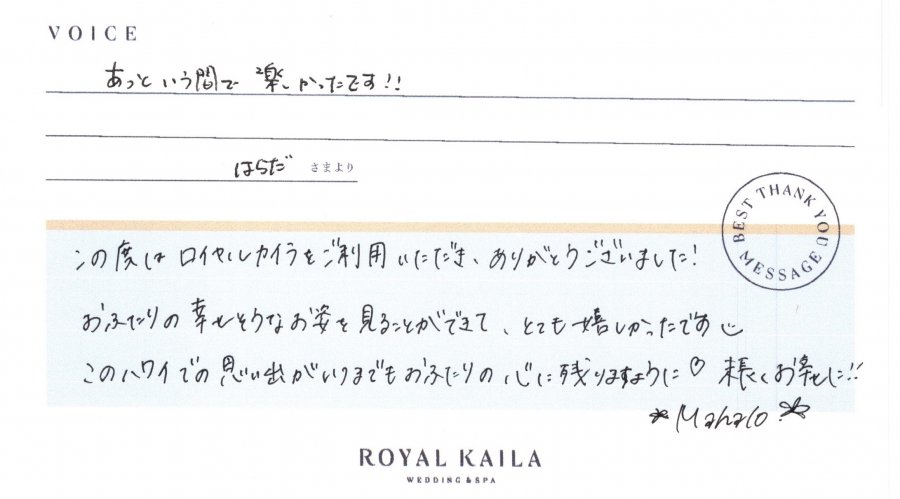 VOICE
あっという間で 楽しかったです!!
はらだ さまより
BEST THANK YOU MESSAGE
この度はロイヤルカイラをご利用いただき、ありがとうございました!
おふたりの幸せそうなお姿を見ることができて、とても嬉しかったです
このハワイでの思い出がいつまでもおふたりの心に残りますように♡ 末長くお幸せに!!
*Mahalo*
ROYAL KAILA
WEDDING & SPA